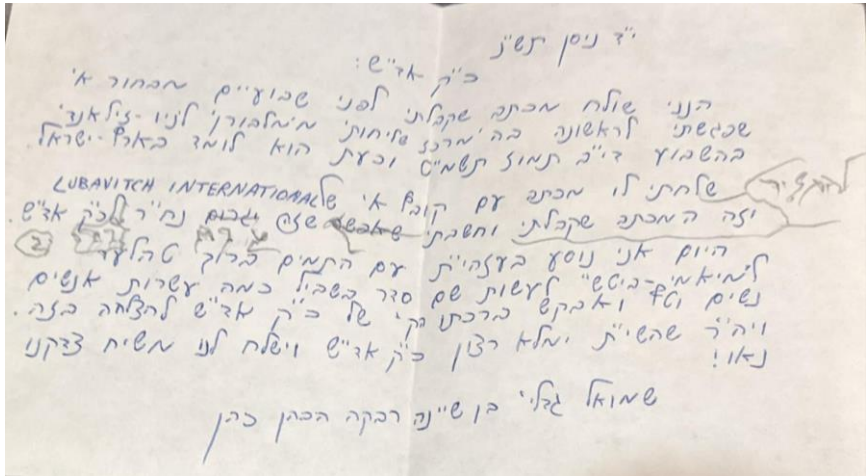 י"ד ניסן תש"נ
כ"ק אד"ש:
הנני שולח מכתב שקבלתי לפני שבועיים מבחור א'
שפגשתי לראשונה בה'מרכז שליחותי' מימלבורן לניו-זילאנד
בהשבוע די"ב תמוז תשמ"ט וכעת הוא לומד בארץ-ישראל.
שלחתי לו מכתב עם קובץ א' של LUBAVITCH INTERNATIONAL
וזה המכתב שקבלתי וחשבתי שאפשר שזה יגרום נח"ר לכ"ק אד"ש.
היום אני נוסע בעזהי"ת עם התמים ברוך
למיאמי-ביטש לעשות שם סדר בשביל כמה עשרות אנשים
נשים וטף ואבקש ברכתו הק' של כ"ק אד"ש להצלחה בזה.
ויה"ר שהשי"ת ימלא רצון כ"ק אד"ש וישלח לנו משיח צדקנו
נאו!
שמואל גדלי' בן שיינה רבקה הכהן כהן